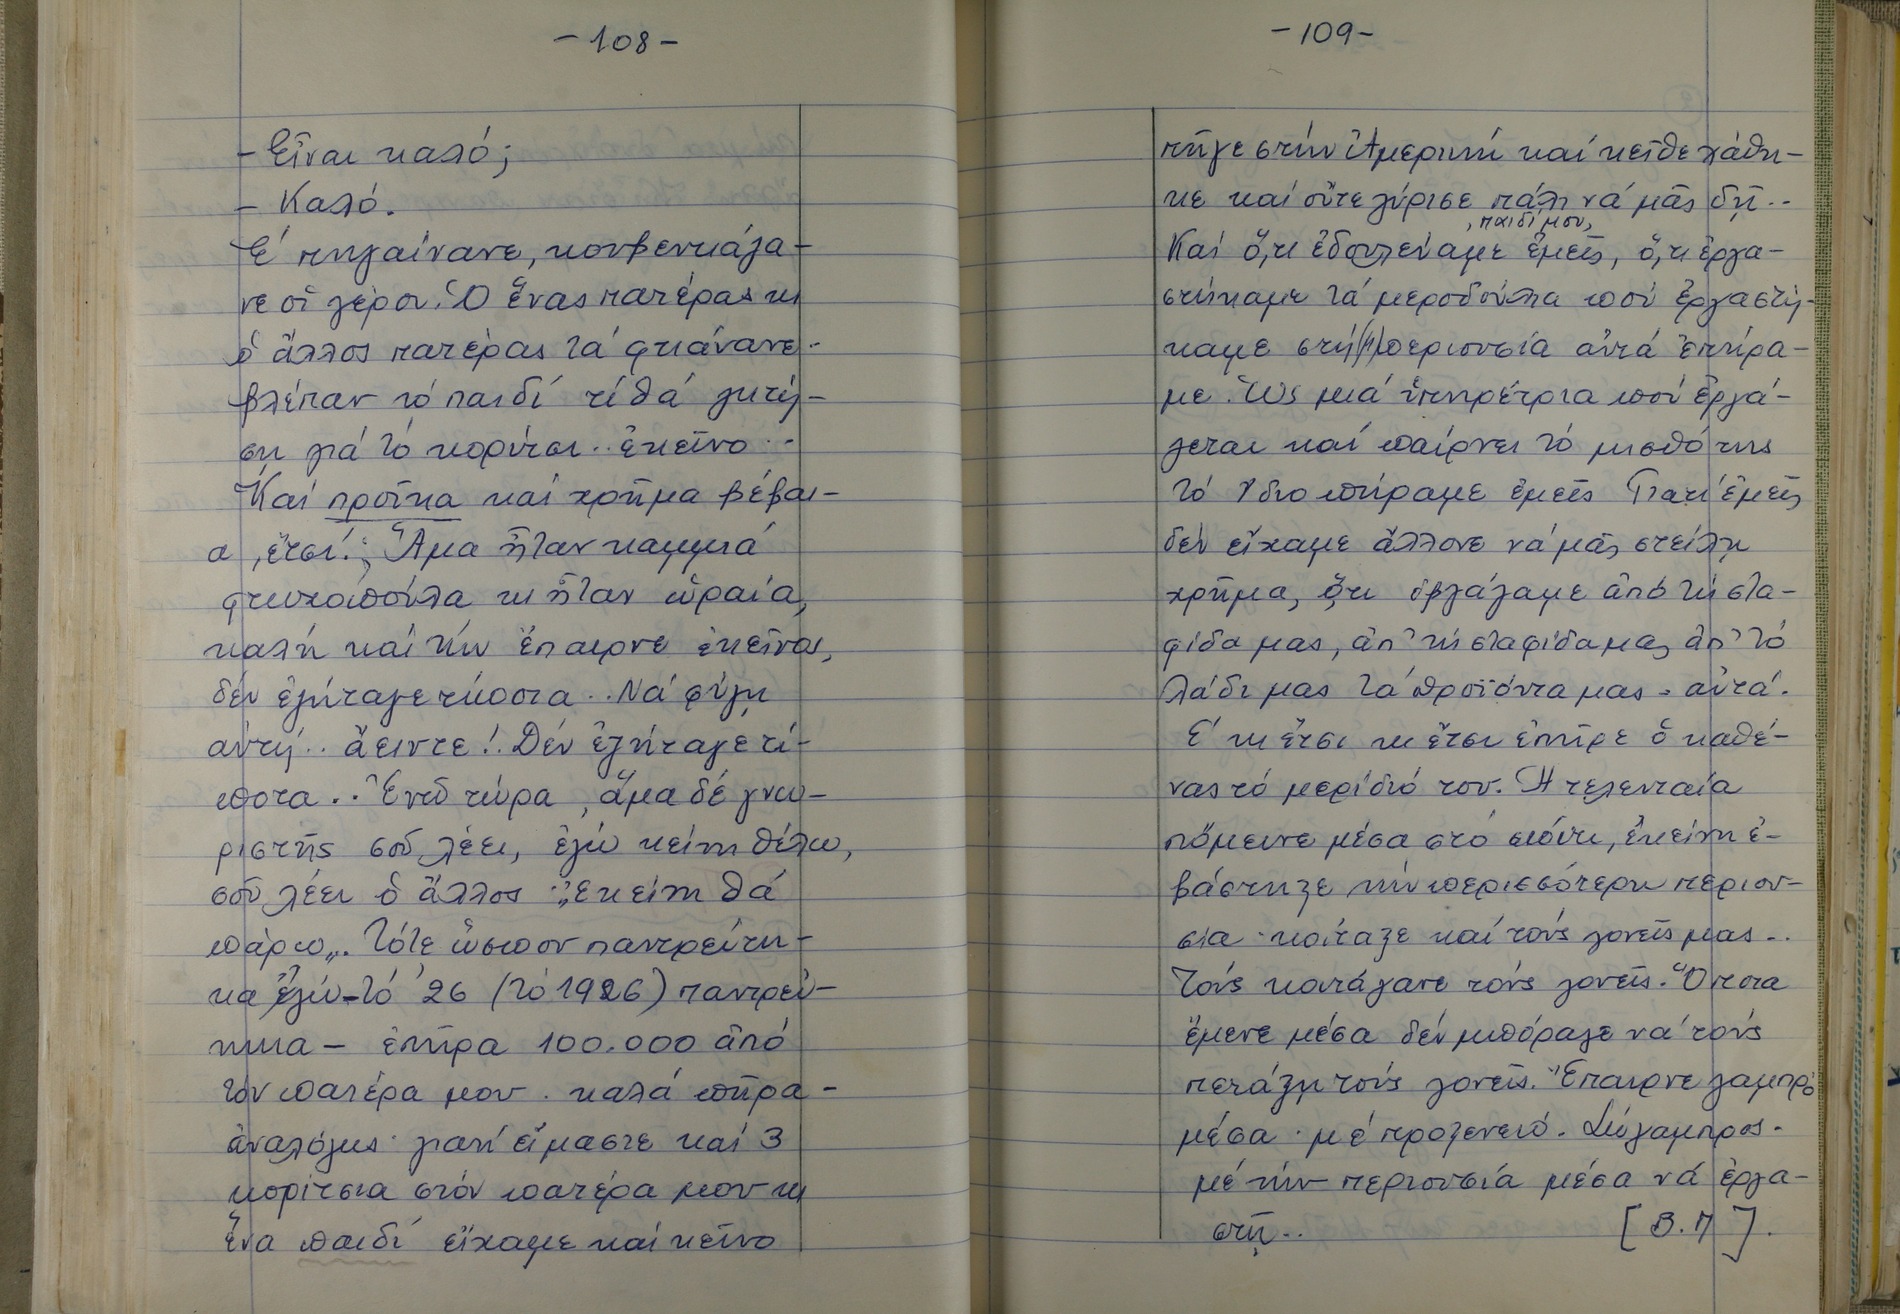 -108-
- Εἶναι καλό;
- Καλό.
Ἐ πηγαίνανε, κουβεντιάζα-
νε οἱ γέροι. Ὁ ἕνας πατέρας κι
ὁ ἄλλος πατέρας τά φτιάνανε.
βλέπαν τό παιδί τί θά ζητή-
ση γιά τό κορίτσι.. ἐκεῖνο..
Καί προῖκα καί χρῆμα βέβαι-
α, ἔτσι!; Ἅμα ἦταν καμμιά
φτωχοπούλα κι ἦταν ὡραία,
καλή καί τήν ἔπαιρνε ἐκεῖνος,
δέν ἐζήταγε τίποτα.. Νά φύγη
αὐτή.. ἄειντε!. Δέν ἐζήταγε τί-
ποτα.. Ἐνῶ τώρα, ἅμα δέ γνω-
ριστῆς σοῦ λέει, ἐγώ κείνη θέλω,
σοῦ λέει ὁ ἄλλος "ἐκείνη θά
πάρω„. Τότε ὥσπου παντρεύτη-
κα ἐγώ-τό '26 (τό 1926) παντρεύ-
τηκα - ἐπῆρα 100.000 ἀπό
τόν πατέρα μου. καλά πῆρα-
ἀναλόγως. γιατί εἴμαστε καί 3
κορίτσια στόν πατέρα μου κι
ἕνα παιδί εἴχαμε καί κεῖνο
-109-
πῆγε στήν Ἀμερική καί κεῖθε χάθη-
κε καί οὔτε γύρισε πάλι νά μᾶς δῆ..
, παιδί μου,
Καί ὅ,τι ἐδουλεύαμε ἐμεῖς, ὅ,τι ἐργα-
στήκαμε τά μεροδούλια πού ἐργαστή-
καμε στή(μ)περιουσία αὐτά ἐπήρα-
με. Ὡς μιά ὑπηρέτρια πού ἐργά-
ζεται καί παίρνει τό μισθό της
τό ἴδιο πήραμε ἐμεῖς Γιατί ἐμεῖς
δέν εἴχαμε ἄλλονε νά μᾶς στείλη
χρῆμα, ὅτι ἐβγάζαμε ἀπό τή στα-
φίδα μας, ἀπ' τή σταφίδα μας ἀπ' τό
λάδι μας τά προϊόντα μας - αὐτά.
Ἐ κι ἔτσι κι ἔτσι ἐπῆρε ὁ καθέ-
νας τό μερίδιό του. Ἡ τελευταία
πόμεινε μέσα στό σπίτι, ἐκείνη ἐ-
βάστηξε τήν περισσότερη περιου-
σία κοίταξε καί τούς γονεῖς μας..
Τούς κοιτάγανε τούς γονεῖς. Ὅποια
ἔμενε μέσα δέν μπόραγε νά τούς
πετάξη τούς γονεῖς. Ἔπαιρνε γαμπρό
μέσα. μέ προξενειό. Σώγαμπρος.
μέ τήν περιουσία μέσα νά ἐργα-
στῆ.. [Β.Π].